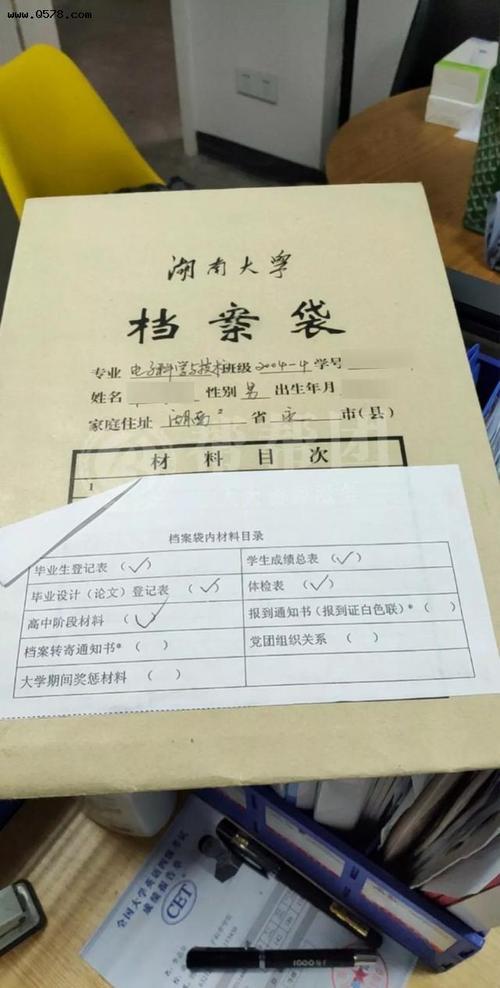 www.0578.com
湖南大学
档案袋
专业 电子科学与技术 班级 2004-4 学号
姓名 性别 男 出生年月
家庭住址 湖南 省 市(县)
材料目次
1
档案袋内材料目录
毕业生登记表 (✓) 学生成绩总表 (✓)
毕业设计(论文)登记表 (✓) 体检表 (✓)
高中阶段材料 (✓) 报到通知书(报到证白色联)* ( )
档案转寄通知书* ( ) 党团组织关系 ( )
大学期间奖惩材料 ( )
全国大学英语四级考试
成绩报告单
CET